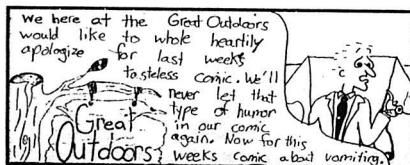 We here at the Great Outdoors
would like to whole heartily
apologize for last weeks
tasteless comic. We'll
never let that
type of humor
in our comic
again. Now for this
weeks comic about vomiting.
Great
Outdoors